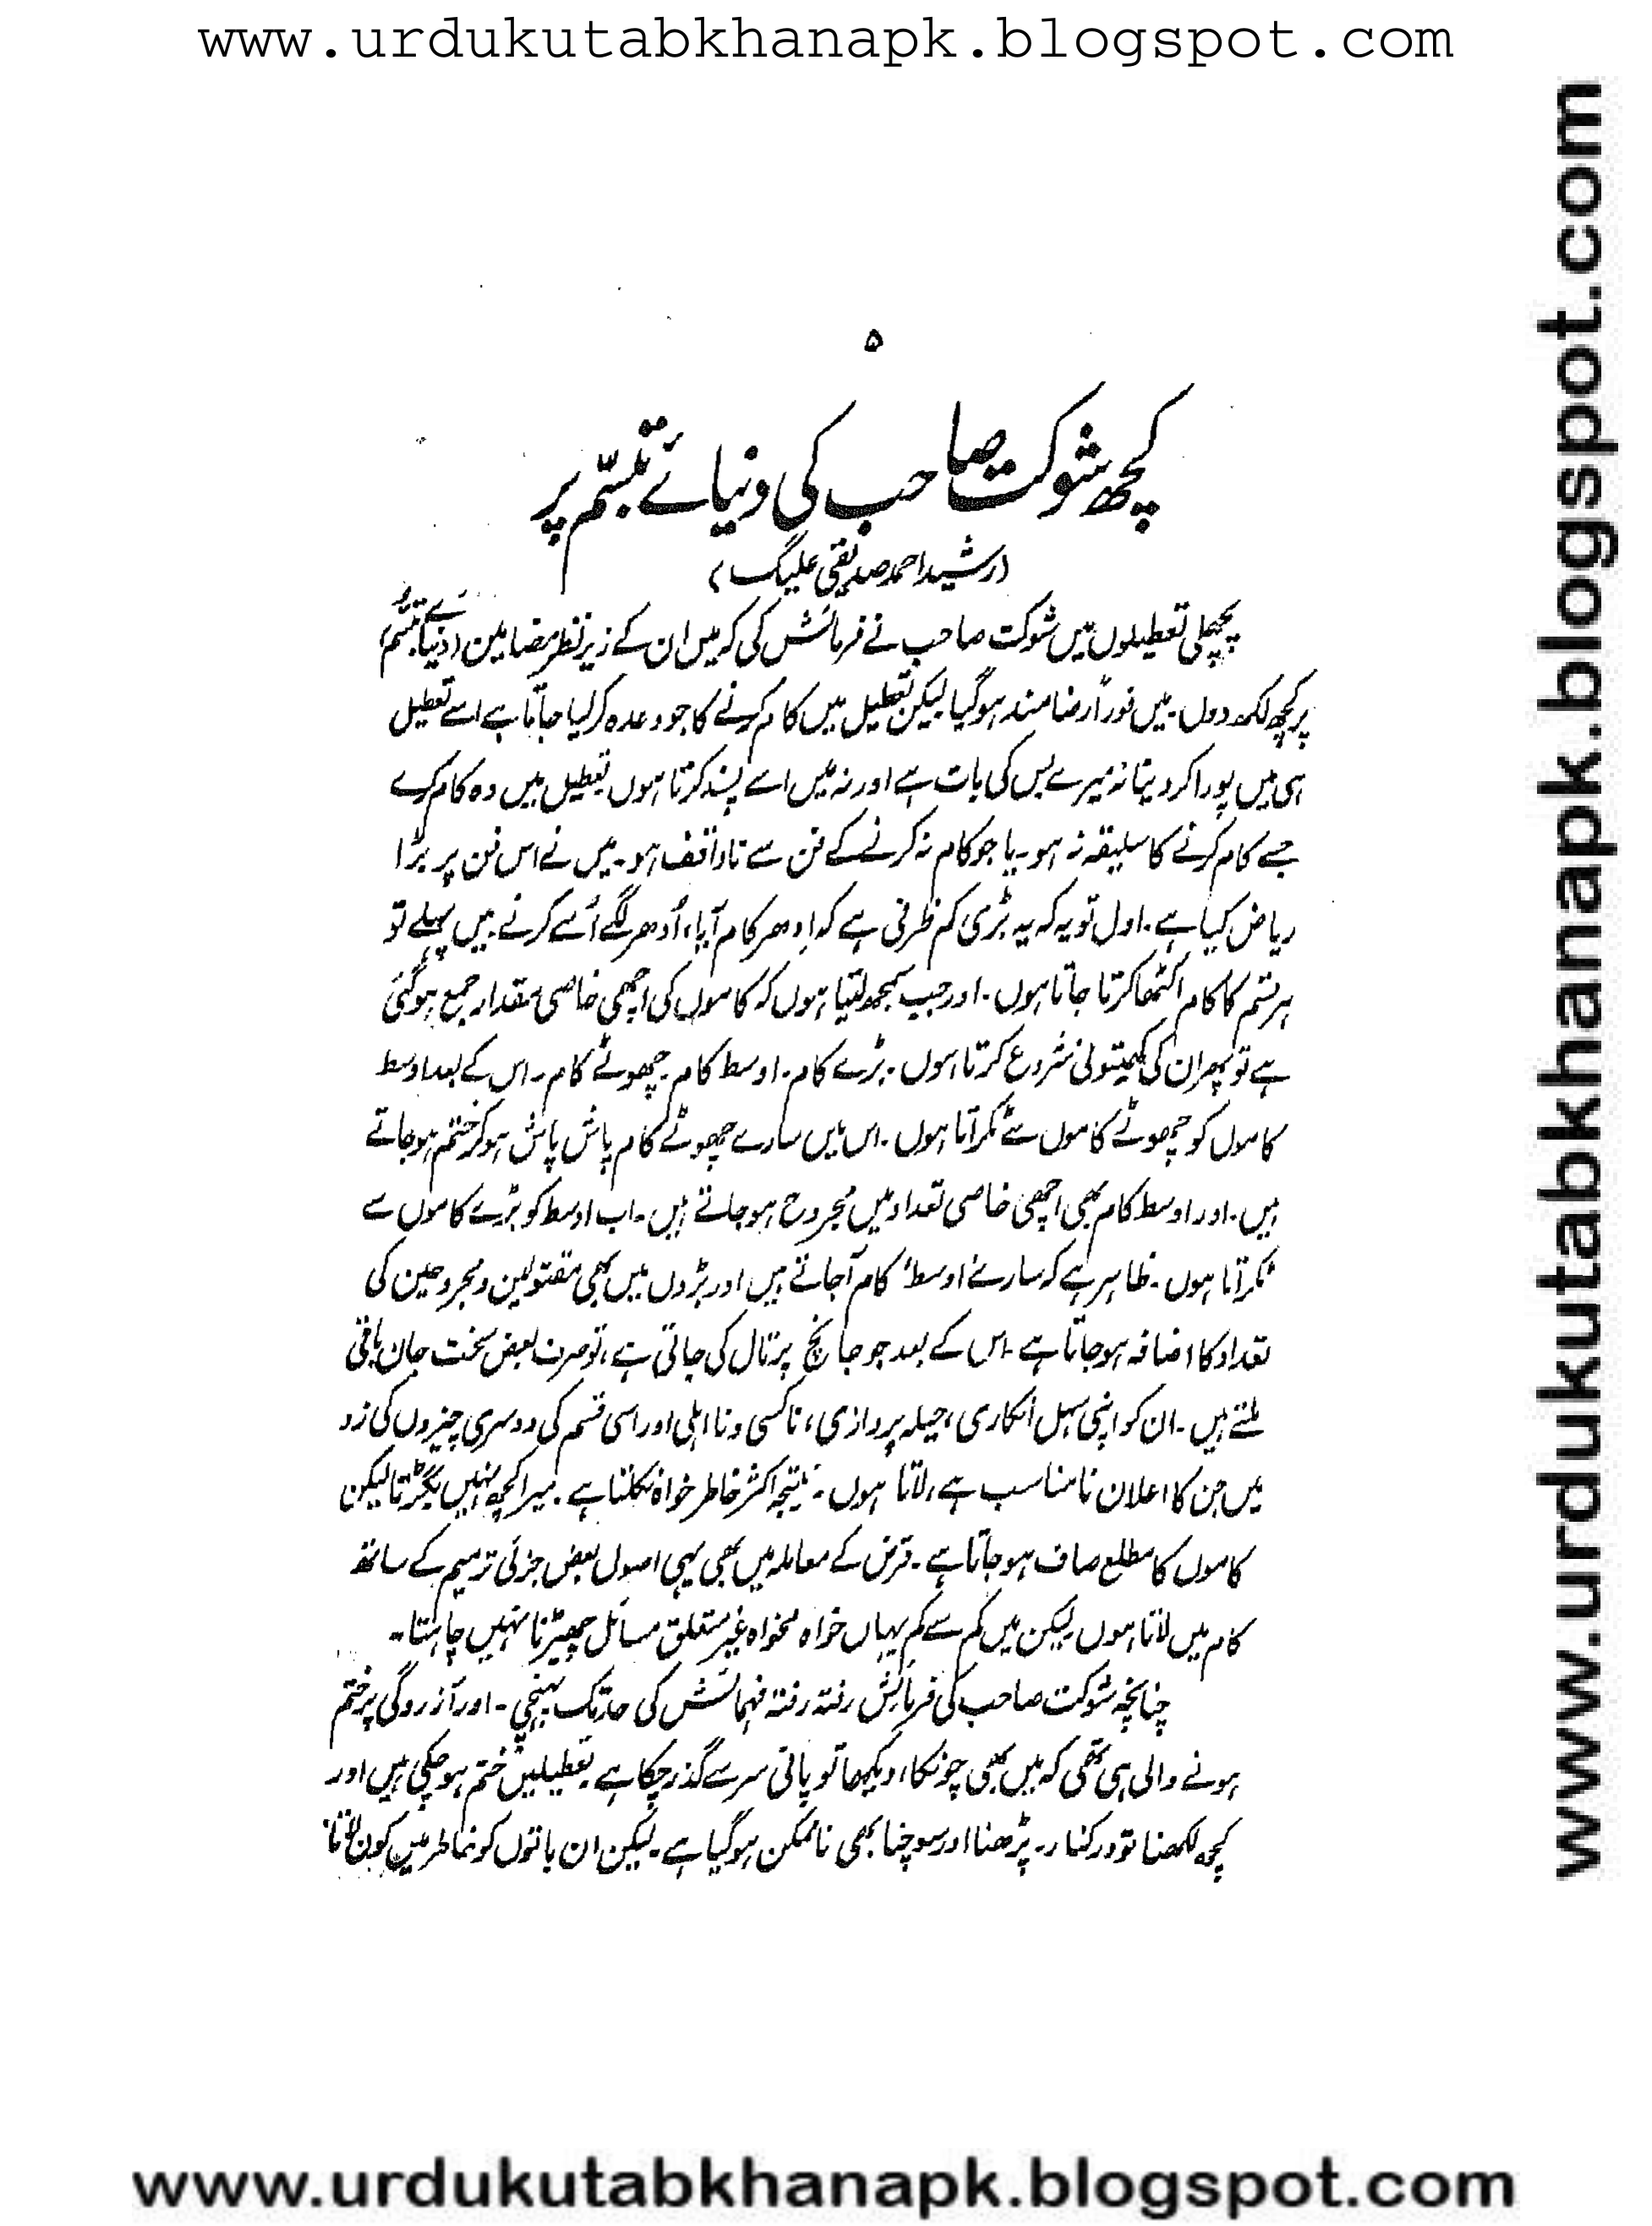 www.urdukutabkhanapk.blogspot.com
۵
کچھ شوکت صاحب کی دنیائے تبسّم پر
(رشید احمد صدیقی علیگ)
پچھلی تعطیلوں میں شوکت صاحب نے فرمائش کی کہ میں ان کے زیر نظر مضامین (دنیائے تبسّم)
پر کچھ لکھ دوں۔ میں فوراً رضامند ہو گیا لیکن تعطیل میں کام کرنے کا جو وعدہ کر لیا جاتا ہے اسے تعطیل
ہی میں پورا کر دینا نہ میرے بس کی بات ہے اور نہ میں اسے پسند کرتا ہوں تعطیل میں وہ کام کرے
جسے کام کرنے کا سلیقہ نہ ہو۔ یا جو کام نہ کرنے کے فن سے ناواقف ہو۔ میں نے اس فن پر بڑا
ریاض کیا ہے۔ اول تو یہ کہ یہ بڑی کم ظرفی ہے کہ اِدھر کام آیا، اُدھر لگے اُسے کرنے۔ میں پہلے تو
ہر قسم کا کام اکٹھا کرتا جاتا ہوں۔ اور جب سمجھ لیتا ہوں کہ کاموں کی اچھی خاصی مقدار جمع ہو گئی
ہے تو پھر ان کی کھیتونی شروع کرتا ہوں۔ بڑے کام۔ اوسط کام۔ چھوٹے کام۔ اس کے بعد اوسط
کاموں کو چھوٹے کاموں سے ٹکراتا ہوں۔ اس میں سارے چھوٹے کام پاش پاش ہو کر ختم ہو جاتے
ہیں۔ اور اوسط کام بھی اچھی خاصی تعداد میں مجروح ہو جاتے ہیں۔ اب اوسط کو بڑے کاموں سے
ٹکراتا ہوں۔ ظاہر ہے کہ سارے 'اوسط' کام آجاتے ہیں اور بڑوں میں بھی مقتولین و مجروحین کی
تعداد کا اضافہ ہو جاتا ہے۔ اس کے بعد جو جانچ پرتال کی جاتی ہے، تو صرف بعض سخت جان باقی
ملتے ہیں۔ ان کو اپنی سہل انکاری، حیلہ پردازی، ناکسی و نااہلی اور اسی قسم کی دوسری چیزوں کی زد
میں جن کا اعلان نامناسب ہے، لاتا ہوں۔ نتیجہ اکثر خاطر خواہ نکلتا ہے۔ میرا کچھ نہیں بگڑتا لیکن
کاموں کا مطلع صاف ہو جاتا ہے۔ قرض کے معاملہ میں بھی یہی اصول بعض جزئی ترمیم کے ساتھ
کام میں لاتا ہوں لیکن میں کم سے کم یہاں خواہ مخواہ غیر متعلق مسائل چھیڑنا نہیں چاہتا۔
چنانچہ شوکت صاحب کی فرمائش رفتہ رفتہ فہمائش کی حد تک پہنچی۔ اور آزردگی پر ختم
ہونے والی ہی تھی کہ میں بھی چونکا، دیکھا تو پانی سر سے گذر چکا ہے۔ تعطیلیں ختم ہو چکی ہیں اور
کچھ لکھنا تو درکنار۔ پڑھنا اور سوچنا بھی ناممکن ہو گیا ہے۔ لیکن ان باتوں کو خاطر میں کون لاتا
www.urdukutabkhanapk.blogspot.com
www.urdukutabkhanapk.blogspot.com